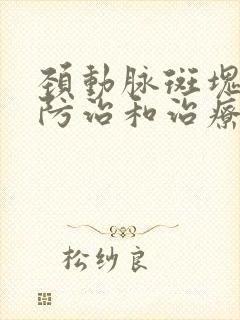 頚動脉斑塊
防治和治療
松纱良